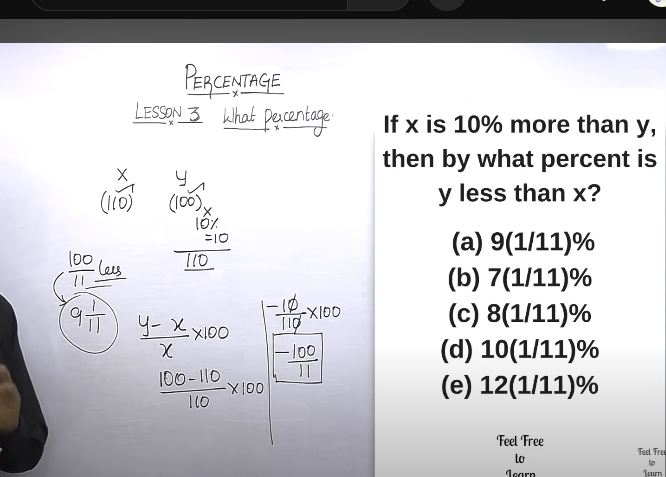 PERCENTAGE
LESSON 3 What Percentage.
x y
(110) (100)
x
10%
=10
110
100/11 less
9 1/11
y - x/x x100
100-110/110 x100
-10/110 x100
-100/11
If x is 10% more than y,
then by what percent is
y less than x?
(a) 9(1/11)%
(b) 7(1/11)%
(c) 8(1/11)%
(d) 10(1/11)%
(e) 12(1/11)%
Feel Free
to
Learn
Feel Free
to
Learn